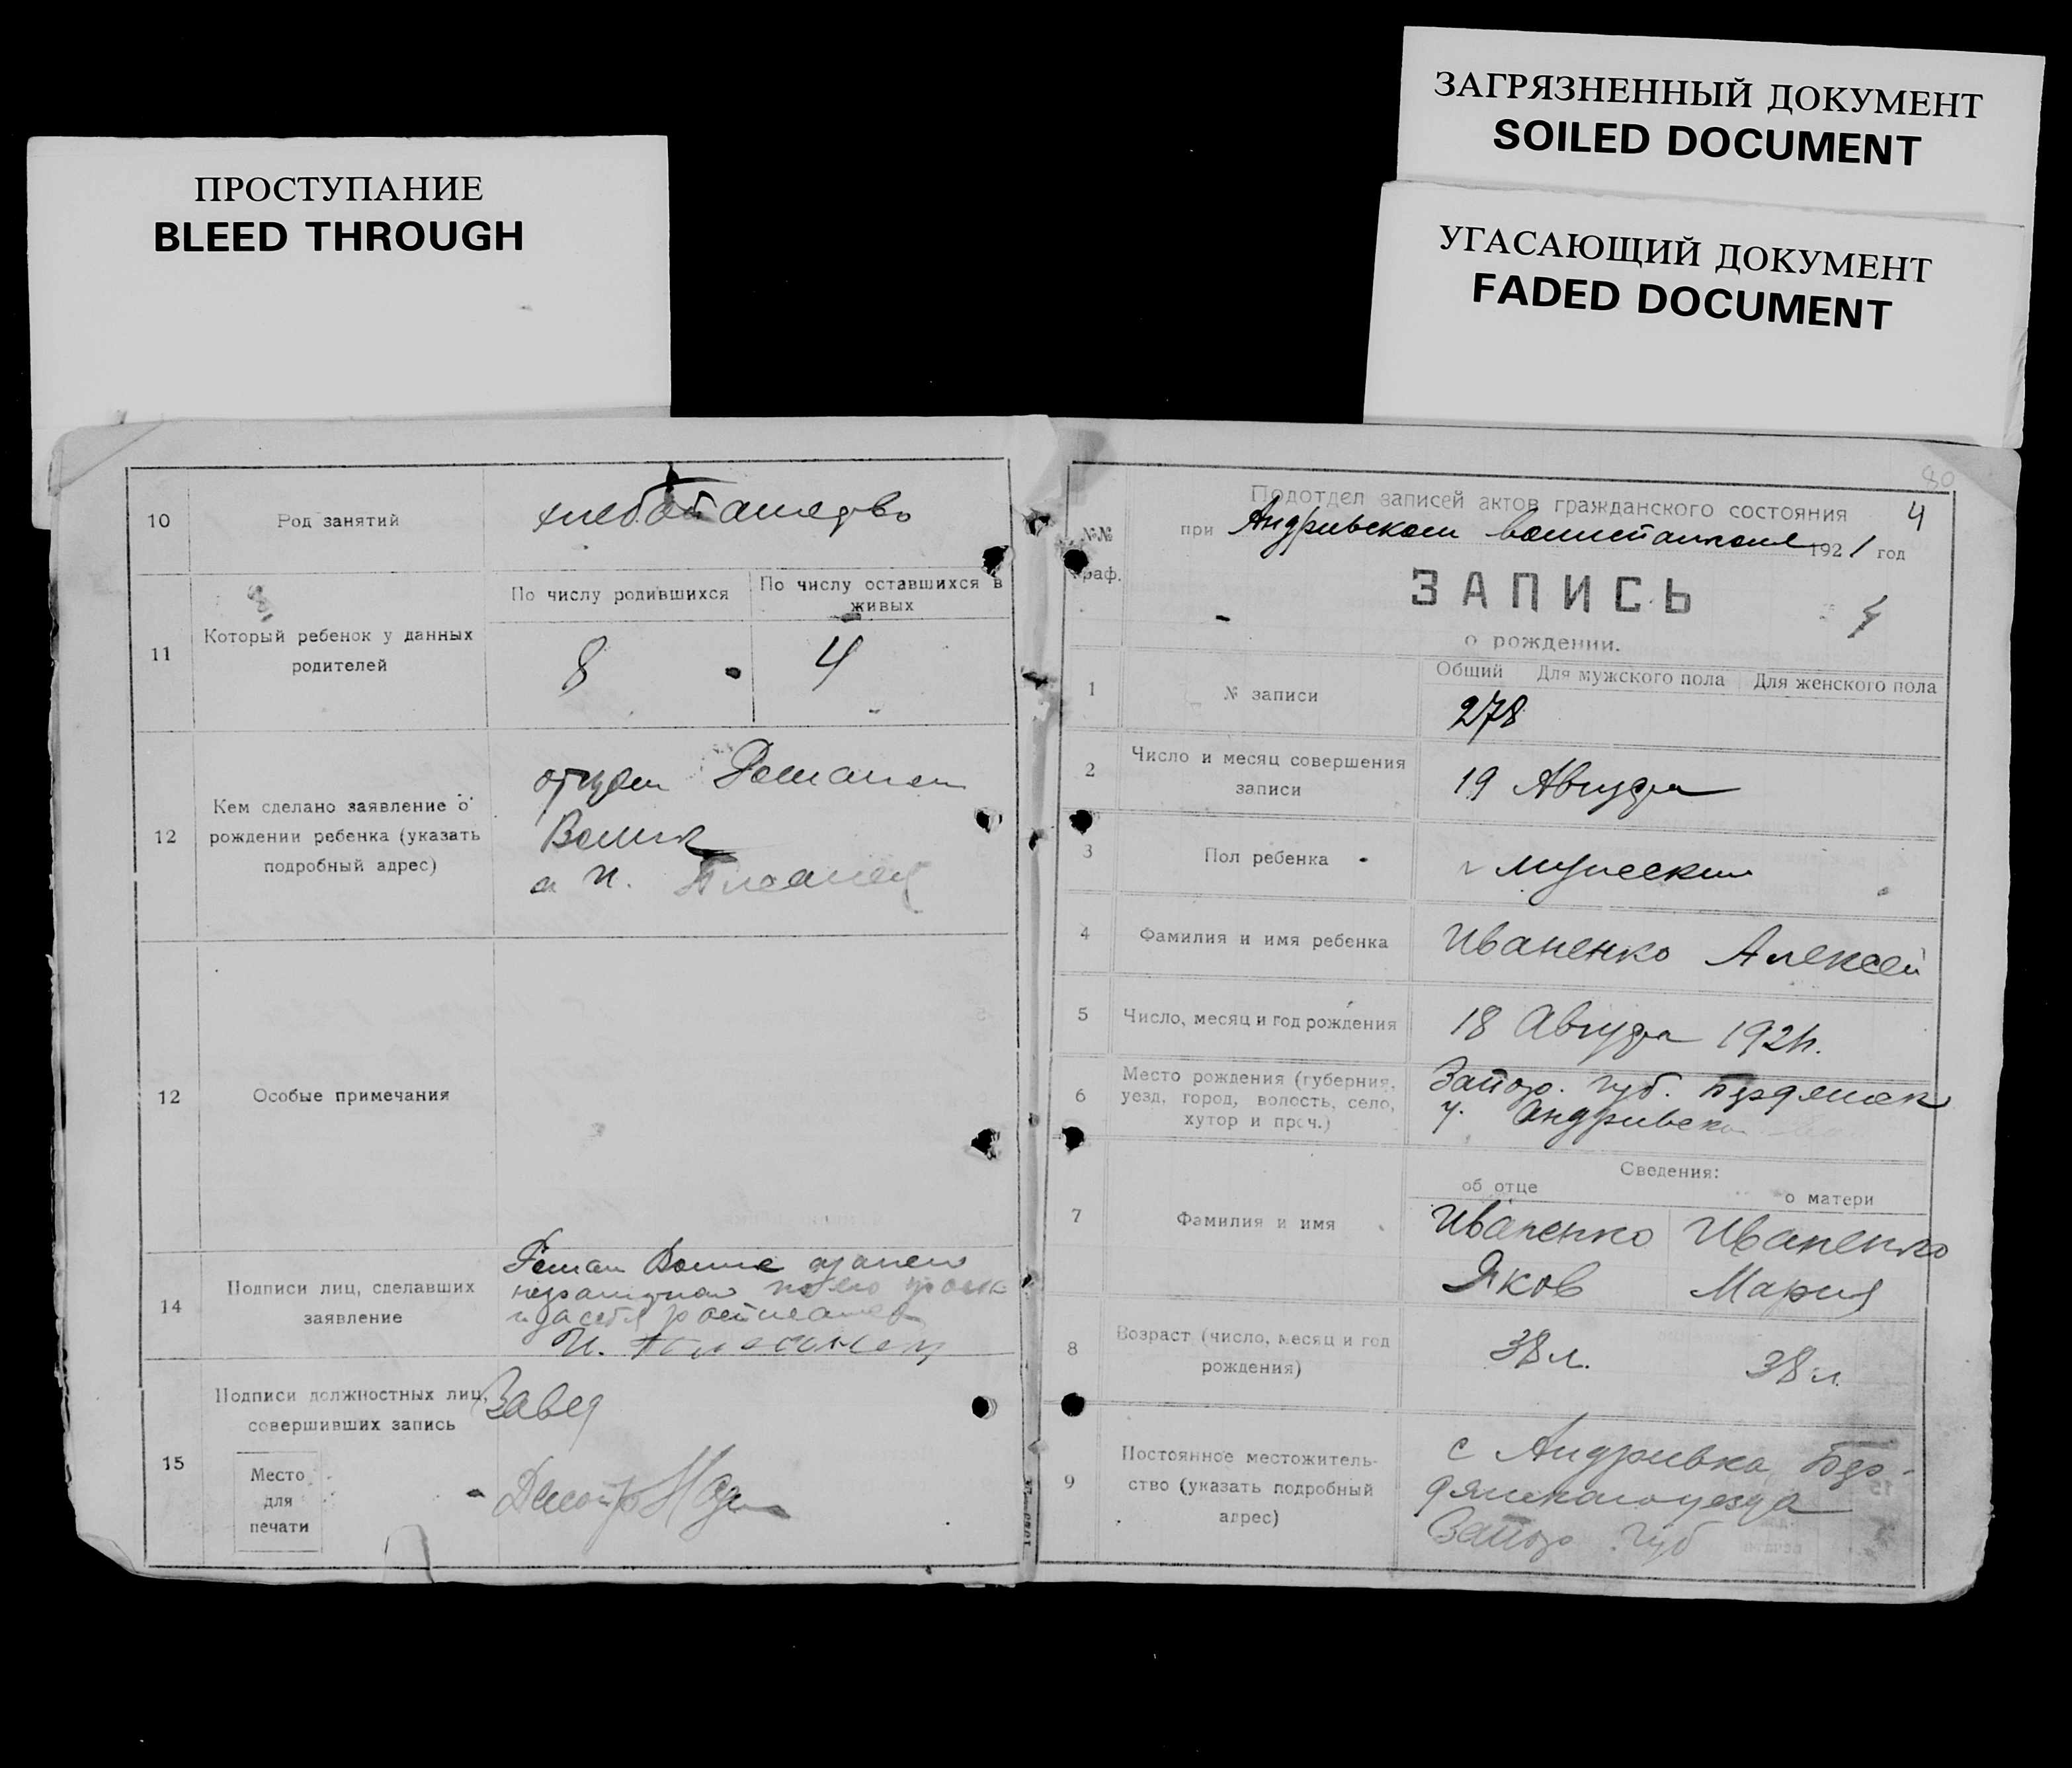 ЗАГРЯЗНЕННЫЙ ДОКУМЕНТ
SOILED DOCUMENT
ПРОСТУПАНИЕ
BLEED THROUGH
УГАСАЮЩИЙ ДОКУМЕНТ
FADED DOCUMENT
10 Род занятий
11 Который ребенок у данных родителей
По числу родившихся
По числу оставшихся в живых
8 4
12 Кем сделано заявление о
рождении ребенка (указать
подробный адрес)
отцем Романом
и И.
12 Особые примечания
14 Подписи лиц, сделавших
заявление
Роман
И.
15 Подписи должностных лиц,
совершивших запись
Завед
Место
для
печати
80
Подотдел записей актов гражданского состояния 4
№№ при Андривском 1921 год
граф.
ЗАПИСЬ
4
о рождении.
Общий Для мужского пола Для женского пола
1 № записи
278
2 Число и месяц совершения
записи
19 Августа
3 Пол ребенка
мужеский
4 Фамилия и имя ребенка
Иваненко Алексей
5 Число, месяц и год рождения
18 Августа 1921г.
6 Место рождения (губерния,
уезд, город, волость, село,
хутор и проч.)
Запор. губ. Бердянск
у. Андривска
Сведения:
об отце о матери
7 Фамилия и имя
Иваненко Иваненко
Яков Мария
8 Возраст (число, месяц и год
рождения)
38 л. 38 л.
9 Постоянное местожитель-
ство (указать подробный
адрес)
с Андривка Бер-
дянского уезда
Запор. губ